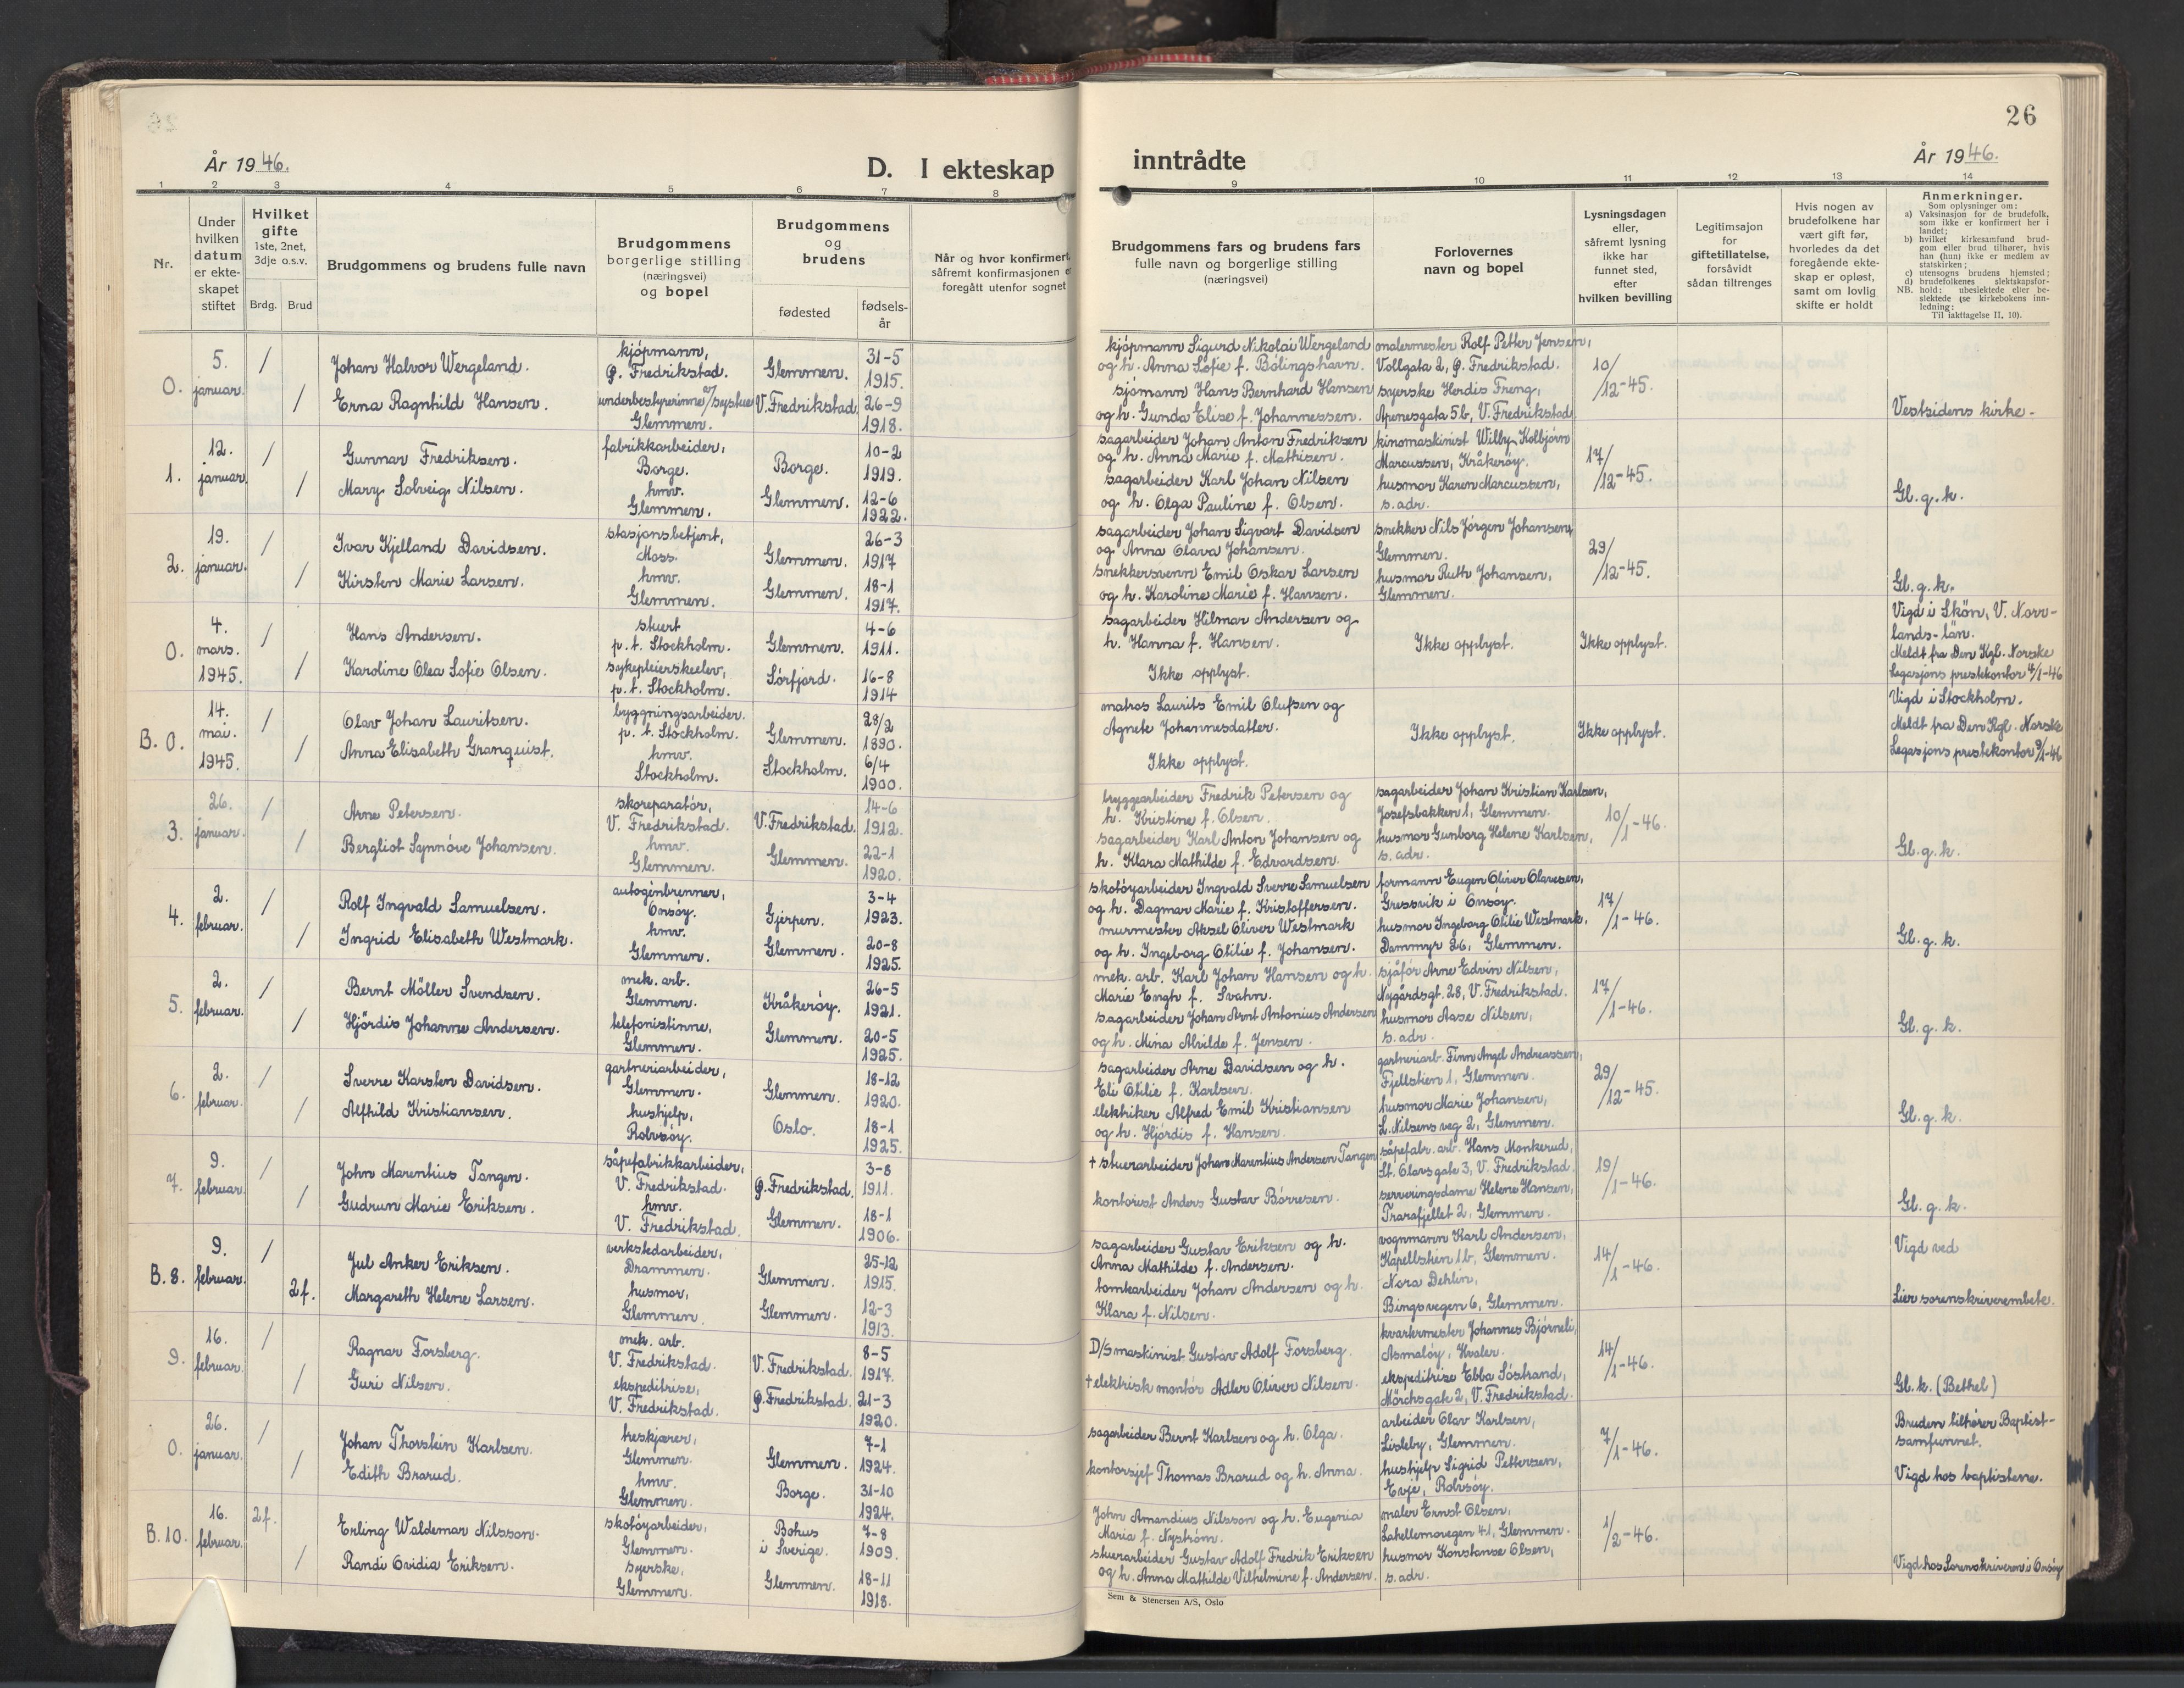 26
År 1946.
D. I ekteskap inntrådte
År 1946.
1 2 3 4 5 6 7 8 9 10 11 12 13 14
Nr.
Under hvilken datum er ekteskapet stiftet
Hvilket gifte
1ste, 2net, 3dje o.s.v.
Brdg. Brud
Brudgommens og brudens fulle navn
Brudgommens borgerlige stilling (næringsvei) og bopel
Brudgommens og brudens
fødested
fødselsår
Når og hvor konfirmert,
såfremt konfirmasjonen er
foregått utenfor sognet
Brudgommens fars og brudens fars
fulle navn og borgerlige stilling
(næringsvei)
Forlovernes
navn og bopel
Lysningsdagen
eller,
såfremt lysning
ikke har
funnet sted,
efter
hvilken bevilling
Legitimsajon
for
giftetillatelse,
forsåvidt
sådan tiltrenges
Hvis nogen av
brudefolkene har
vært gift før,
hvorledes da det
foregående ekte-
skap er opløst,
samt om lovlig
skifte er holdt
Anmerkninger.
Som oplysninger om:
a) Vaksinasjon for de brudefolk,
som ikke er konfirmert her i
landet;
b) hvilket kirkesamfund brud-
gom eller brud tilhører, hvis
han (hun) ikke er medlem av
statskirken;
c) utensogns brudens hjemsted;
d) brudefolkenes slektskapsfor-
NB. hold: ubeslektede eller be-
slektede (se kirkebokens inn-
ledning:
Til iakttagelse II, 10).
0. 5. januar. / /
Johan Halvor Wergeland.
Erna Ragnhild Hansen.
kjøpmann,
Ø. Fredrikstad.
underbestyrerinne av/systue
Glemmen.
Glemmen. 31-5 1915.
V. Fredrikstad 26-9 1918.
kjøpmann Sigurd Nikolai Wergeland
og h. Anna Sofie f. Bølingshavn.
sjømann Hans Bernhard Hansen
og h. Gunda Elise f. Johannessen.
malermester Rolf Petter Jensen,
Vollgata 2, Ø. Fredrikstad.
syerske Herdis Freng,
Apenesgata 5b, V. Fredrikstad
10/12-45.
Vestsidens kirke-
1. 12. januar. / /
Gunnar Fredriksen.
Mary Solveig Nilsen.
fabrikkarbeider,
Borge.
hmv.
Glemmen.
Borge. 10-2 1919.
Glemmen. 12-6 1922.
sagarbeider Johan Anton Fredriksen
og h. Anna Marie f. Mathisen.
sagarbeider Karl Johan Nilsen
og h. Olga Pauline f. Olsen.
kinomaskinist Willy Kolbjørn
Marcussen, Kråkerøy.
husmor Karen Marcussen,
s. adr.
17/12-45.
Gl. g. k.
2. 19. januar. / /
Ivar Kjelland Davidsen.
Kirsten Marie Larsen.
stasjonsbetjent,
Moss.
hmv.
Glemmen.
Glemmen. 26-3 1917
Glemmen. 18-1 1917.
sagarbeider Johan Sigvart Davidsen
og Anna Olava Johansen.
snekkersvenn Emil Oskar Larsen
og h. Karoline Marie f. Hansen.
snekker Nils Jørgen Johansen,
Glemmen.
husmor Ruth Johansen,
Glemmen.
29/12-45.
Gl. g. k.
0. 4. mars. 1945. / /
Hans Andersen.
Karoline Olea Sofie Olsen.
stuert
p. t. Stockholm.
sykepleierskeelev,
p. t. Stockholm.
Glemmen. 4-6 1911.
Sörfjord. 16-8 1914
sagarbeider Hilmar Andersen og
h. Hanna f. Hansen.
Ikke opplyst.
Ikke opplyst.
Ikke opplyst.
Vigd i Skön, V. Norr-
lands-län.
Meldt fra Den Kgl. Norske
Legasjons prestekontor 4/1-46
B. 0. 14. mai. 1945. / /
Olav Johan Lauritsen.
Anna Elisabeth Granquist.
byggningsarbeider.
p. t. Stockholm.
hmv.
Stockholm.
Glemmen. 28/2 1890.
Stockholm. 6/4 1900.
matros Laurits Emil Olufsen og
Agnete Johannesdatter.
Ikke opplyst.
Ikke opplyst.
Ikke opplyst.
Vigd i Stockholm.
Meldt fra Den Kgl. Norske
Legasjons prestekontor 9/1-46
3. 26. januar. / /
Arne Petersen.
Bergliot Synnöve Johansen.
skoreparatør,
V. Fredrikstad.
hmv.
Glemmen.
V. Fredrikstad. 14-6 1912.
Glemmen. 22-1 1920.
bryggearbeider Fredrik Petersen og
h. Kristine f. Olsen.
sagarbeider Karl Anton Johansen og
h. Klara Mathilde f. Edvardsen.
sagarbeider Johan Kristian Karlsen,
Josefsbakken 1, Glemmen.
husmor Gunborg Helene Karlsen,
s. adr.
10/1-46.
Gl. g. k.
4. 2. februar. / /
Rolf Ingvald Samuelsen.
Ingrid Elisabeth Westmark.
autogénbrenner,
Onsøy.
hmv.
Glemmen.
Gjerpen. 3-4 1923.
Glemmen. 20-8 1925.
skotøyarbeider Ingvald Sverre Samuelsen
og h. Dagmar Marie f. Kristoffersen.
murmester Aksel Oliver Westmark
og h. Ingeborg Otilie f. Johansen.
formann Eugen Oliver Olavesen,
Gressvik i Onsøy.
husmor Ingeborg Otilie Westmark,
Dammyr 26, Glemmen.
17/1-46.
Gl. g. k.
5. 2. februar. / /
Bernt Möller Svendsen.
Hjördis Johanne Andersen.
mek. arb.
Glemmen.
telefonistinne,
Glemmen.
Kråkerøy. 26-5 1921.
Glemmen. 20-5 1925.
mek. arb. Karl Johan Hansen og h.
Marie Engh f. Svahn.
sagarbeider Johan Arnt Antonius Andersen
og h. Mina Alvilde f. Jensen.
sjåfør Arne Edvin Nilsen,
Nygårdsgt. 28, V. Fredrikstad.
husmor Aase Nilsen,
s. adr.
17/1-46.
Gl. g. k.
6. 2. februar. / /
Sverre Karsten Davidsen.
Alfhild Kristiansen.
gartneriarbeider,
Glemmen.
hushjelp,
Rolvsøy.
Glemmen. 18-12 1920.
Oslo. 18-1 1925.
sagarbeider Arne Davidsen og h.
Eli Otilie f. Karlsen.
elektriker Alfred Emil Kristiansen
og h. Hjördis f. Hansen.
gartneriarb. Finn Angel Andreassen,
Fjellstien 1, Glemmen.
husmor Marie Johansen,
L. Nilsens veg 2, Glemmen.
29/12-45.
Gl. g. k.
7. 9. februar. / /
John Marentius Tangen.
Gudrun Marie Eriksen.
såpefabrikkarbeider,
V. Fredrikstad.
hmv.
V. Fredrikstad.
Ø. Fredrikstad. 3-8 1911.
Glemmen. 18-1 1906.
+ stuerarbeider Johan Marentius Andersen Tangen
kontorist Anders Gustav Börresen.
såpefabr. arb. Hans Monkerud,
St. Olavs gate 3, V. Fredrikstad.
serveringsdame Helene Hansen,
Trarafjellet 2, Glemmen.
19/1-46.
Gl. g. k.
B. 8. 9. februar. / 2 f.
Jul Anker Eriksen.
Margareth Helene Larsen.
verkstedarbeider,
Drammen.
husmor,
Glemmen.
Glemmen. 25-12 1915.
Glemmen. 12-3 1913.
sagarbeider Gustav Eriksen og h.
Anna Mathilde f. Andersen.
tomtearbeider Johan Andersen og h.
Klara f. Nilsen.
vognmann Karl Andersen,
Kapellstien 1b, Glemmen.
Nora Dehlin,
Bingsvegen 6, Glemmen.
14/1-46.
Vigd ved
Lier sorenskriverembete.
9. 16. februar. / /
Ragnar Forsberg.
Guri Nilsen.
mek. arb.
V. Fredrikstad.
ekspeditrise,
V. Fredrikstad.
V. Fredrikstad. 8-5 1917.
Ø. Fredrikstad. 21-3 1920.
D/S maskinist Gustav Adolf Forsberg.
+ elektrisk montør Adler Oliver Nilsen.
kvartermester Johannes Bjørneli,
Asmaløy, Hvaler.
ekspeditrise Ebba Söstrand,
Mörchsgate 2, V. Fredrikstad.
14/1-46.
Gl. k. (Bethel)
0. 26. januar. / /
Johan Thorstein Karlsen.
Edith Brarud.
treskjærer,
Glemmen.
hmv.
Glemmen.
Glemmen. 7-1 1924.
Borge. 31-10 1924.
sagarbeider Bernt Karlsen og h. Olga.
kontorsjef Thomas Brarud og h. Anna.
arbeider Olav Karlsen,
Lisleby, Glemmen.
hushjelp Sigrid Pettersen,
Evje, Rolvsøy.
7/1-46.
Bruden tilhører Baptist-
samfunnet.
Vigd hos baptistene.
B. 10. 16. februar. 2 f. /
Erling Waldemar Nilsson.
Randi Ovidia Eriksen.
skotøyarbeider,
Glemmen.
syerske,
Glemmen.
Bohus i Sverige. 7-8 1909.
Glemmen. 18-11 1918.
John Amandius Nilsson og h. Eugenia
Maria f. Nyström.
stuerarbeider Gustav Adolf Fredrik Eriksen
og h. Anna Mathilde Vilhelmine f. Andersen.
maler Ernst Olsen,
Lahellemovegen 41, Glemmen.
husmor Konstanse Olsen,
s. adr.
1/2-46.
Vigd hos Sorenskriveren i Onsøy
Sem & Stenersen A/S, Oslo